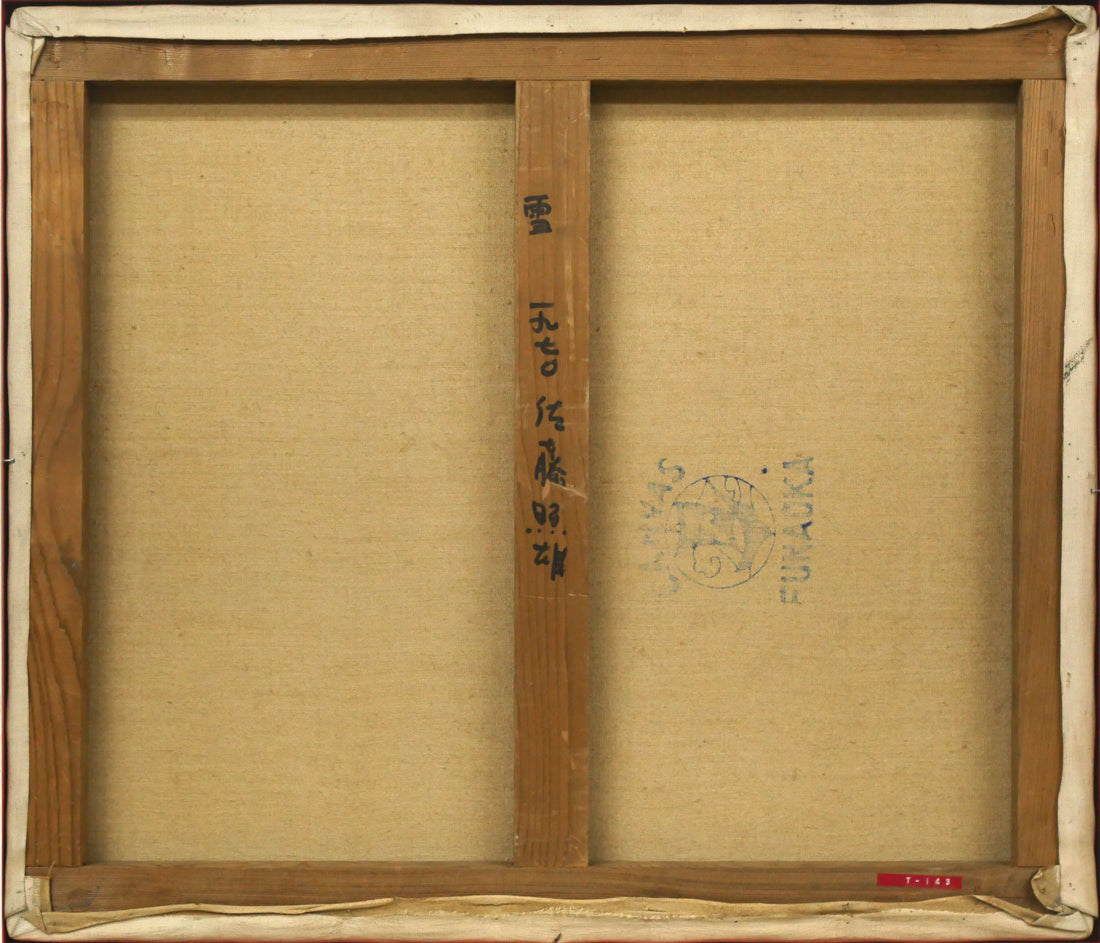 雪 一九七〇 佐藤照雄
CANVAS
FUNAOKA
T-143